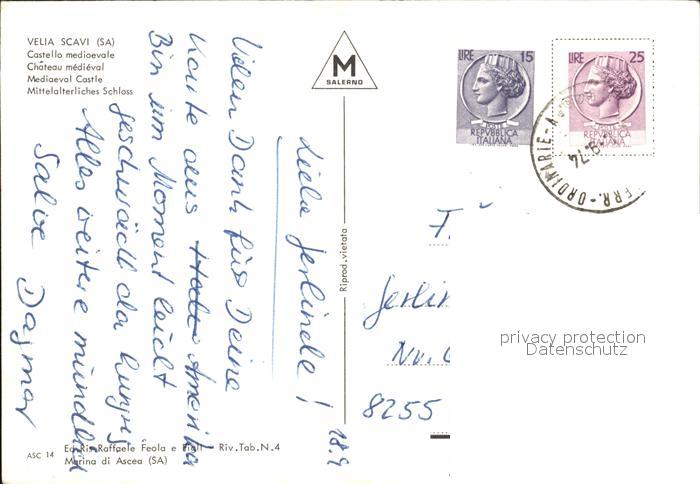 VELIA SCAVI (SA)
Castello medioevale
Château médiéval
Mediaeval Castle
Mittelalterliches Schloss
M
SALERNO
LIRE 15
POSTE
REPVBBLICA
ITALIANA
LIRE 25
REPVBBLICA
ITALIANA
FERR.-ORDINARIE-A
74
Riprod. vietata
18.9
Liebe Gerlinde!
Vielen Dank für Deine
Karte aus Amerika
Bin im Moment leicht
geschwächt da hungrig
Alles weitere mündlich
Salve Dagmar
F.
Gerlin
Nr.
8255
privacy protection
Datenschutz
ASC 14
Ed. Ris. Raffaele Feola e Figli - Riv. Tab. N. 4
Marina di Ascea (SA)